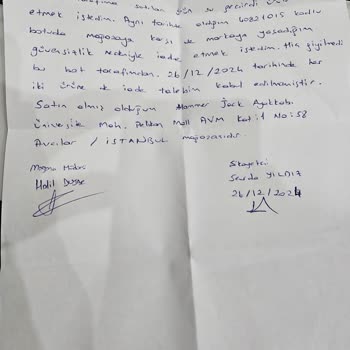 satılan ürün su geçirdi
etmek istedim. Aynı tarihte aldığım 40821015 kodlu
botuda mağazaya karşı ve markaya yaşadığım
güvensizlik nedeniyle iade etmek istedim. Hiç giyilmedi
bu bot tarafımdan. 26/12/2024 tarihinde her
iki ürüne de iade talebim kabul edilmemiştir.
Satın almış olduğum Hammer Jack Ayakkabı
Üniversite Mah. Pelikan Mall AVM Kat:1 No:58
Avcılar / İSTANBUL mağazasıdır.
Mağaza Müdürü
Halil
Şikayetçi
Sevda YILDIZ
26/12/2024